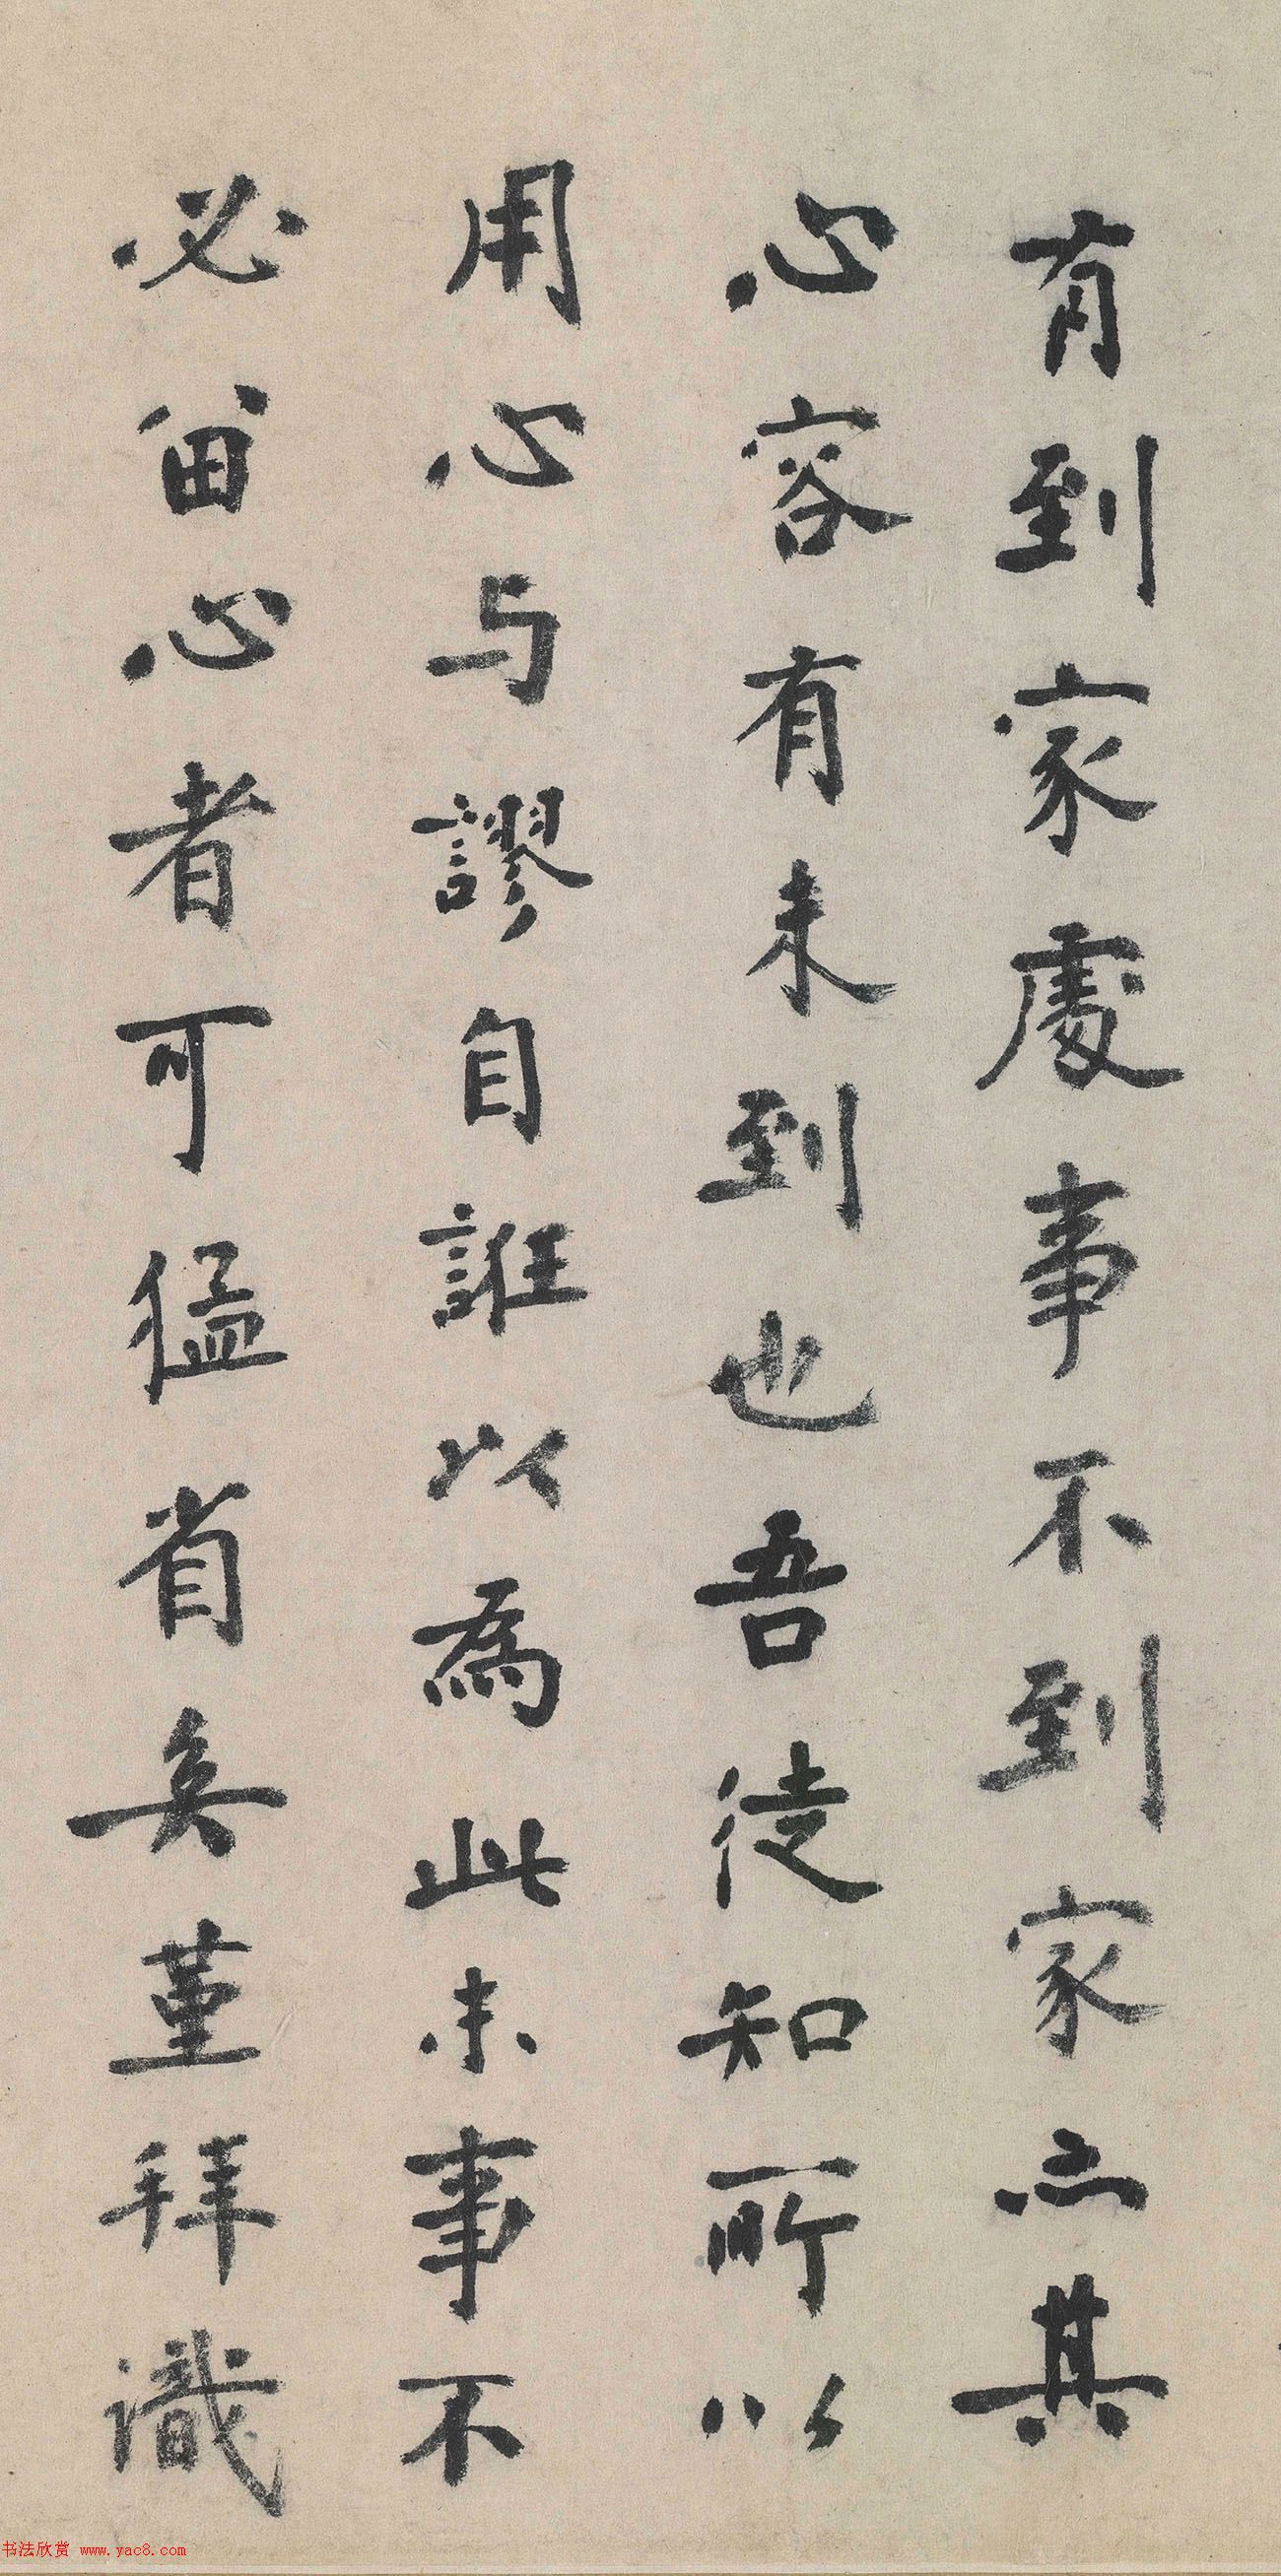 有到家處事不到家亦其
心容有未到也吾徒知所以
用心与謬自誑以為此末事不
必畱心者可猛省矣堇拜識
书法欣赏 www.yac8.com